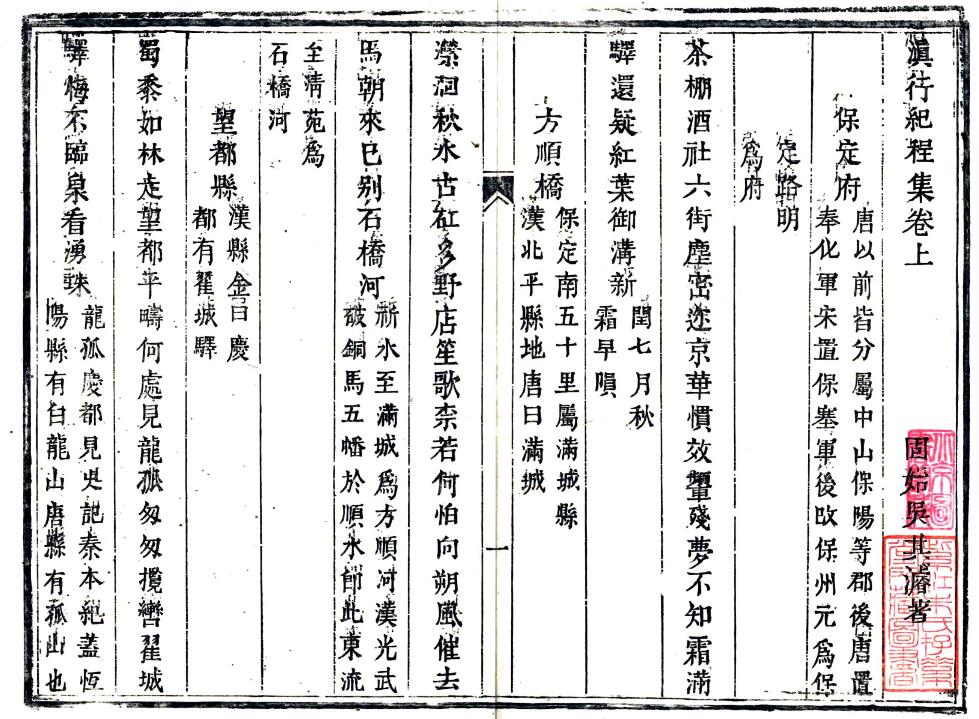 滇行紀程集卷上
固始吳其濬著
保定府
唐以前皆分屬中山保陽等郡後唐置
奉化軍宋置保塞軍後改保州元為保
定路明
為府
茶棚酒社六街塵密迩京華慣效顰殘夢不知霜滿
驛還疑紅葉御溝新
閏七月秋
霜早隕
方順橋
保定南五十里屬滿城縣
漢北平縣地唐曰滿城
潆洄秋水古杠多野店笙歌柰若何怕向朔風催去
馬朝來已别石橋河
漸水至滿城爲方順河漢光武
破銅馬五幡於順水卽此東流
至清苑爲
石橋河
望都縣
漢縣金曰慶
都有翟城驛
蜀黍如林走望都平疇何處見龍孤匆匆攬轡翟城
驛悔不臨泉看湧珠
龍孤慶都見史記秦本紀蓋恆
陽縣有白龍山唐縣有孤山也
一